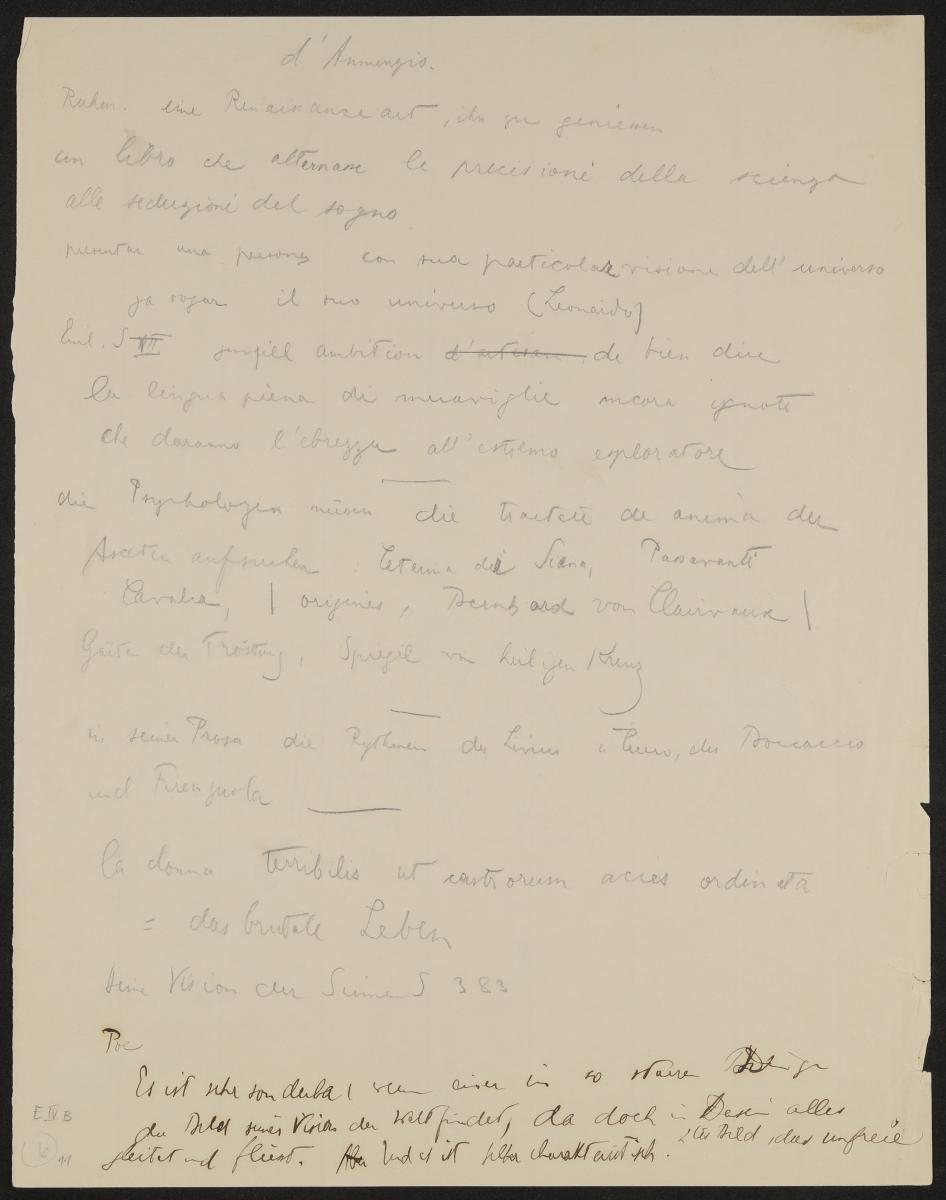 d'Annunzio.
Ruhm. eine Renaissanceart, ihn zu geniessen
un libro che alternasse le precisioni della scienza
alle seduzioni del sogno
presentar una persona con sua particolar visione dell'universo
il suo universo (Leonardo)
Einl. S VII ambition d'artisan de bien dire
la lingua piena di meraviglie ancora ignote
che daranno l'ebrezza all'estremo esploratore
die Psychologen müssen die tractate de anima der
Asceten aufsuchen: Caterina di Siena, Passavanti
Cavalca, | origines, Bernhard von Clairvaux |
der Tröstung, Spiegel vom heiligen Kreuz
in seiner Prosa die Rythmen des Livius, des Boccaccio
und Firenzuola
la donna terribilis ut castrorum acies ordinata
= das brutale Leben
Vision der S 383
Poe
Es ist sehr sonderbar, wenn einer in so starren
das Bild seiner Vision der Welt findet, da doch in Dasein alles
gleitet und fliesst. Aber Und es ist selber charakteristisch.
das unfreie
E.IV B
11